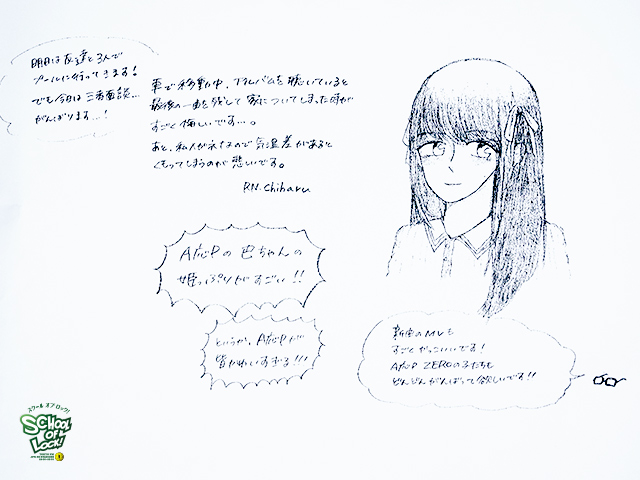 明日は友達と3人で
プールに行ってきます!
でも今日は三者面談…
がんばります…!
車で移動中、アルバムを聴いていると
最後の一曲を残して家についてしまった時が
すごく悔しいです…。
あと、私メガネなので気温差があると
くもってしまうのが悲しいです。
R.N. Chiharu
A応Pの巴ちゃんの
姫っぷりがすごい!!
というか、A応Pが
皆かわいすぎる!!!
新曲のMVも
すごくかっこいいです!
A応P ZEROの子たちも
どんどんがんばって欲しいです!!
スクール オブ ロック!
SCHOOL
OF
LOCK!